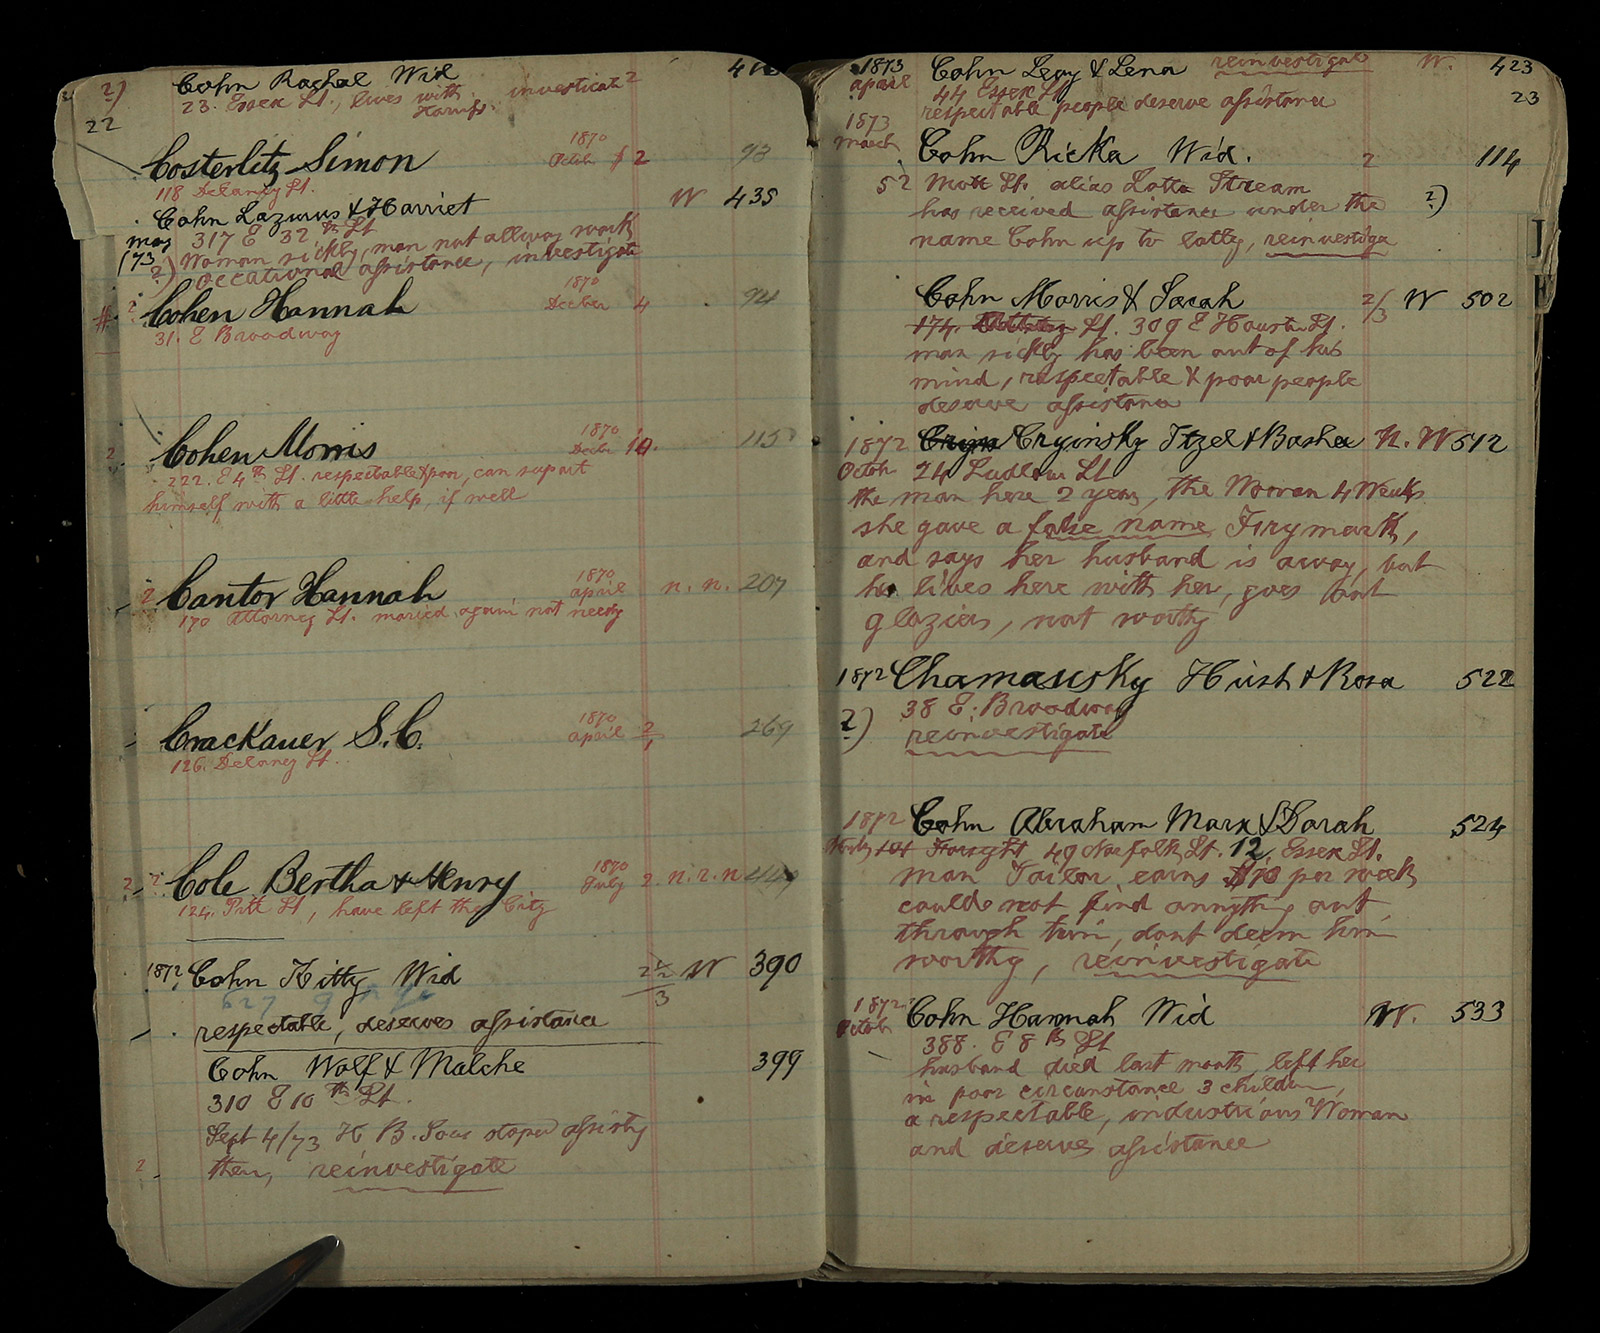 2) Cohn Rachel Wid 2 416
23. Essex St., lives with investicate
22
Costerlitz Simon 1870 Octob $ 2 93
118 Delancy St.
Cohn Lazurus & Harriet W 435
May 317 E 32th St
(73 Woman sickly, man not allway work
2) occational assistance, investigate
# 2 Cohen Hannah 1870 Decber 4 94
31. E Broadway
2 Cohen Morris 1870 Decbr 10. 115
222. E 4th St. respectable & poor, can suport
himself with a little help, if well
2 Cantor Hannah 1870 april n. n. 207
170 Attorney St. maried again not needy
Crackauer S. C. 1870 april 2/1 269
126. Delaney St.
2 ? Cole Bertha & Henry 1870 July 2 n. r. n
124. Pitt St, have left the City
1872 Cohn Kitty Wid 2½/3 W 390
627 9
respectable, deserves assistance
Cohn Wolf & Malche 399
310 E 10th St.
Sept 4/73 H. B. Soc stoped assistg
2 them, reinvestigate
1873 Cohn Levy & Lena reinvestigate W. 423
april 44 Essex St 23
respectable people deserve assistance
1873
March Cohn Ricka Wid. 2 114
52 Mott St. alias Lotta Stream 2)
has received assistance under the
name Cohn up to latly, reinvestiga
Cohn Morris & Sarah 2/3 W 502
174. St. 309 E Houston St.
man sickly has been out of his
mind, respectable & poor people
deserve assistance
1872 Cryinsky Itzel & Basha N. W 512
Octob 24 Ludlow St
the man here 2 years, the Woman 4 Weeks
she gave a false name Firymark,
and says her husband is away, but
he lives here with her, goes out
glazier, not worthy
1872 Chamausky Hirsh & Rosa 522
2) 38 E. Broadway
reinvestigate
1872 Cohn Abraham Marx & Sarah 524
Forsyht 49 Norfolk St. 12 Essex St.
man Tailor, earns $10 per week
could not find annything out
through him, dont deem him
worthy, reinvestigate
1872 Cohn Hannah Wid W. 533
Octob 388. E 8th St
husband died last month, left her
in poor circunstance 3 children,
a respectable, industrious Woman
and deserves assistance